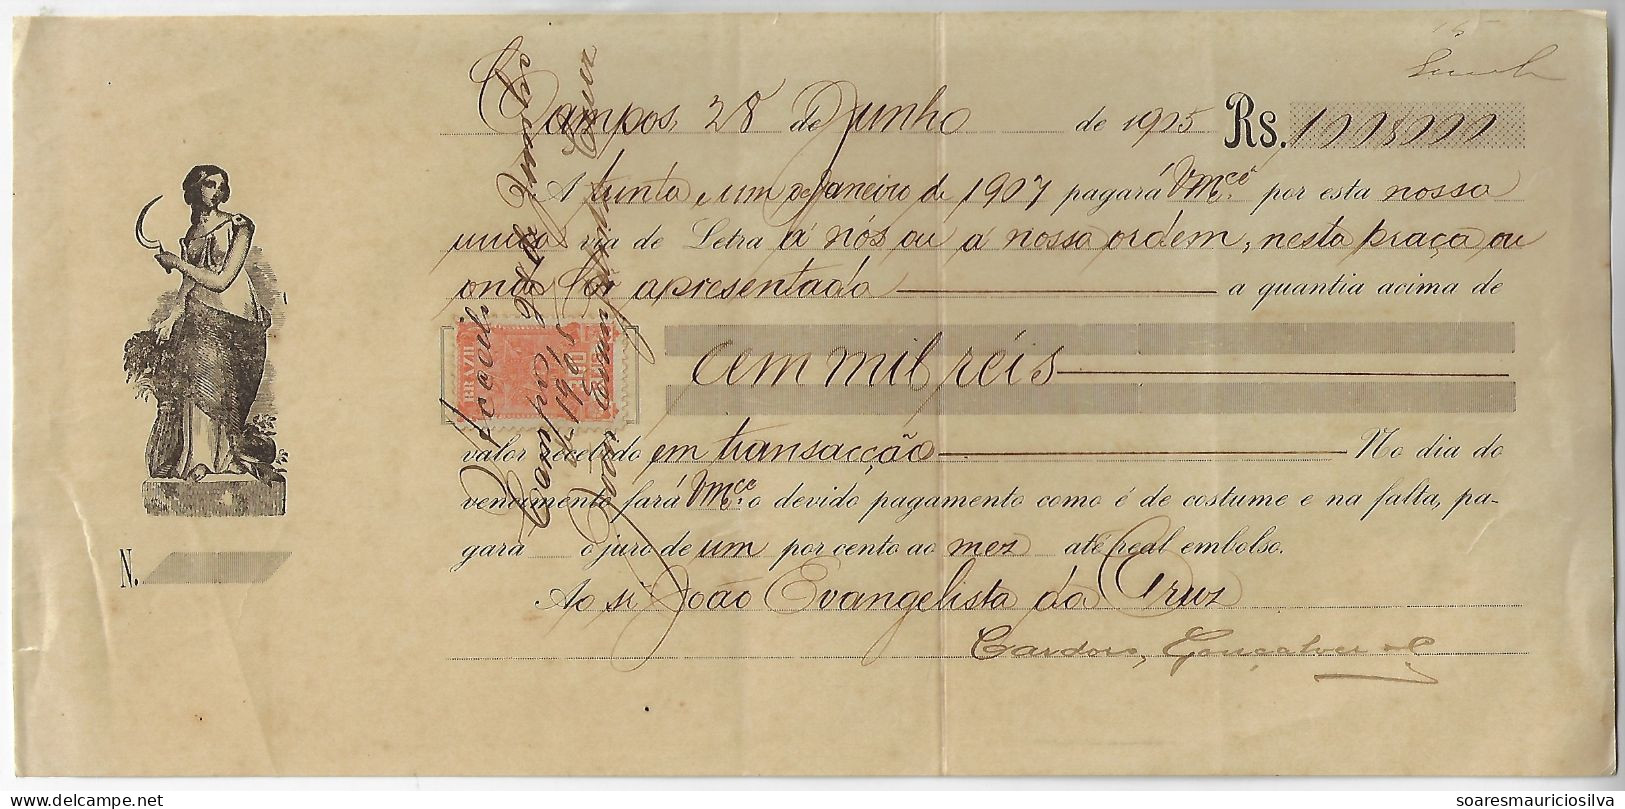 Campos, 28 de Junho de 1905 Rs. 100$000
A trinta e um de Janeiro de 1907 pagará Vmcê. por esta nossa
unica via de Letra á nós ou á nossa ordem, nesta praça ou
onde fôr apresentada a quantia acima de
cem mil réis
valor recebido em transacção No dia do
vencimento fará Vmcê. o devido pagamento como é de costume e na falta, pa-
gará o juro de um por cento ao mez até real embolso.
Ao sr João Evangelista da Cruz
Cardoso, Gonçalves & C
N.
BRAZIL
Campos 28 de Junho
de 1905
João Evangelista da Cruz
soaresmauriciosilva